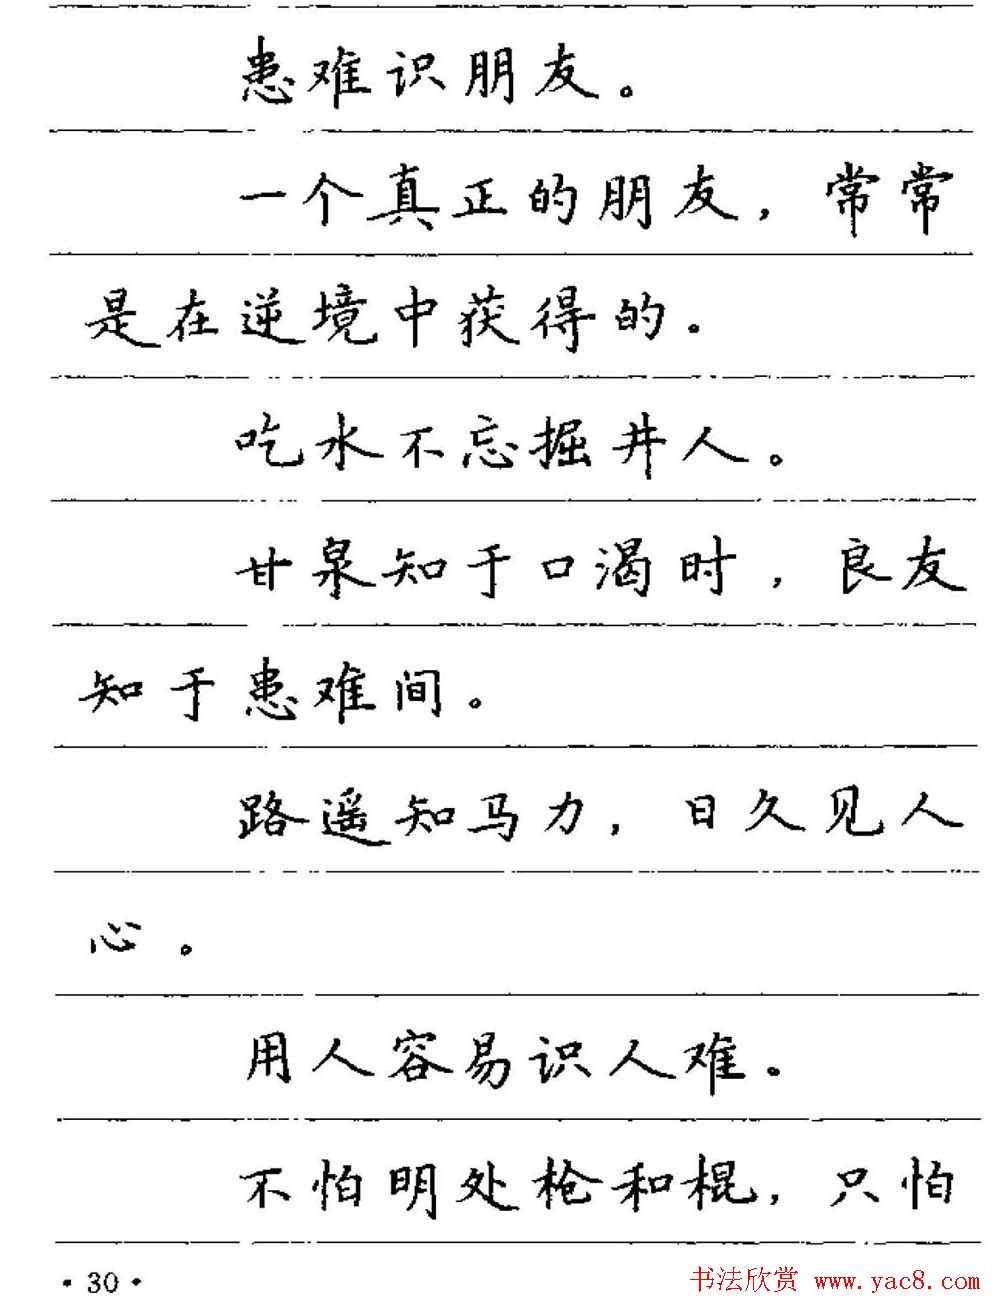 患难识朋友。
一个真正的朋友，常常
是在逆境中获得的。
吃水不忘掘井人。
甘泉知于口渴时，良友
知于患难间。
路遥知马力，日久见人
心。
用人容易识人难。
不怕明处枪和棍，只怕
·30·
书法欣赏 www.yac8.com